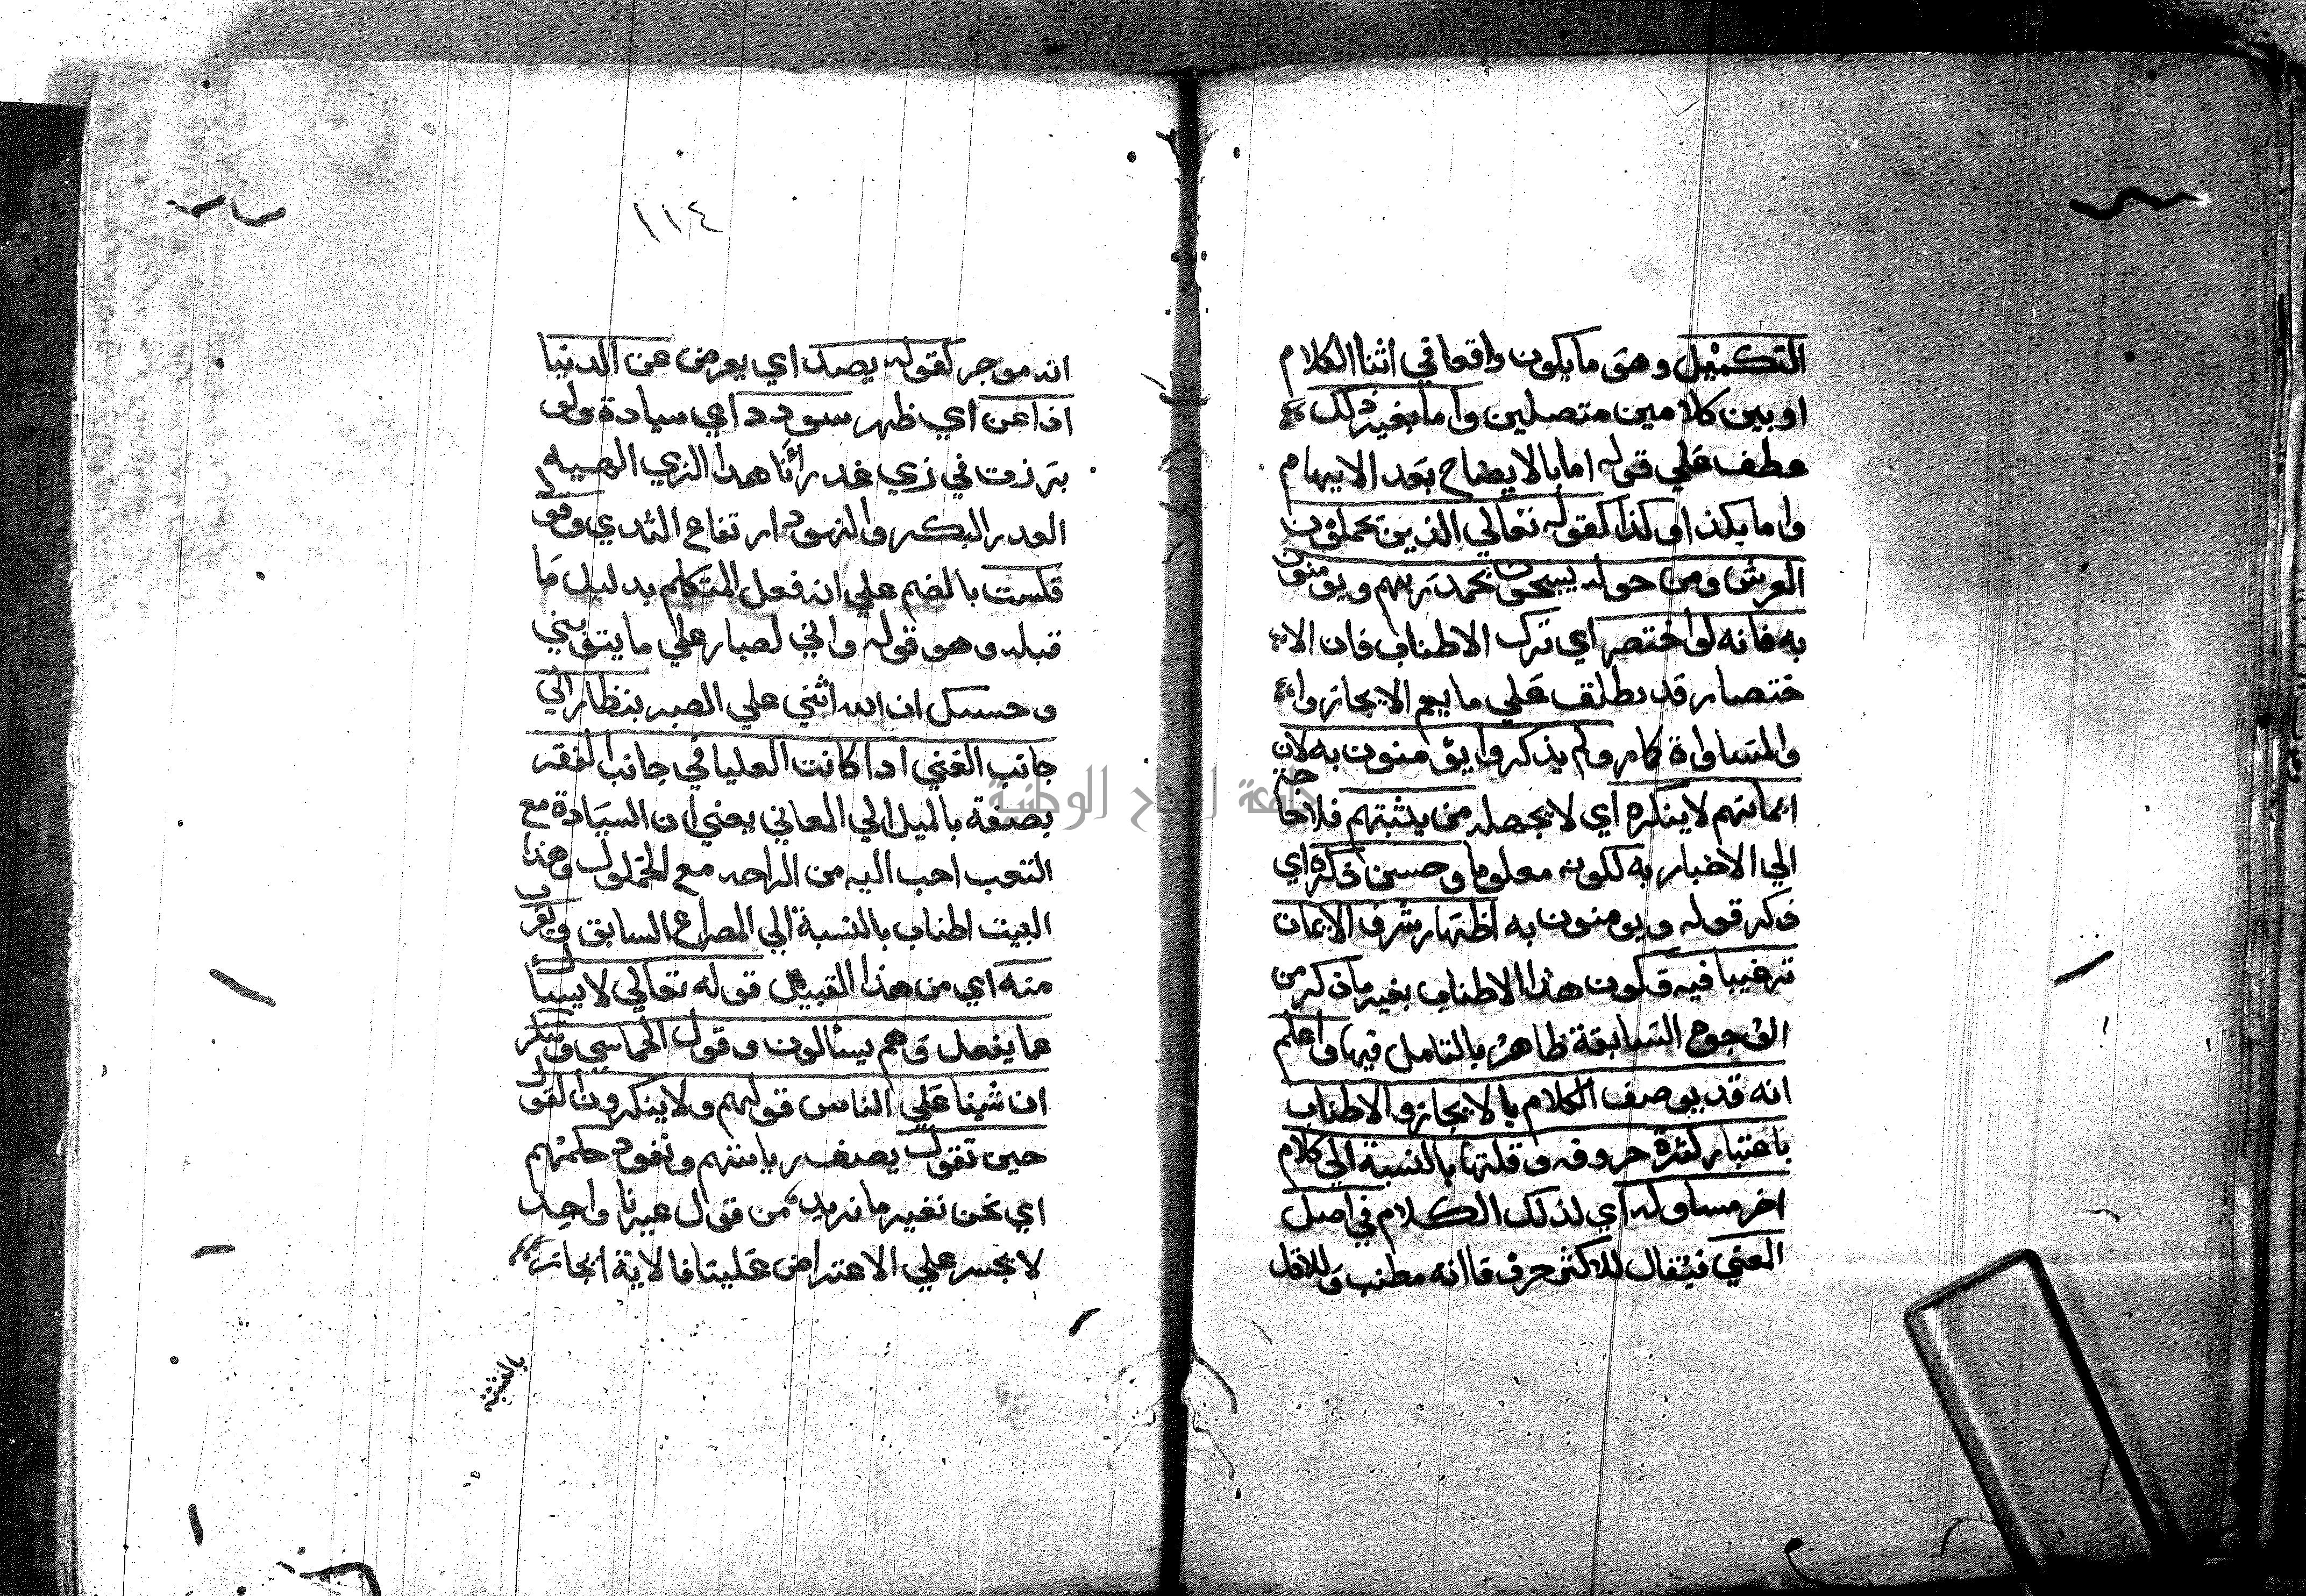 التكميل وهو ما يكون واقعا في اثنا الكلام
او بين كلامين متصلين واما بغير ذلك
عطف علي قوله اما بالايضاح بعد الابهام
واما بكذا وكذا كقوله تعالي الذين يحملون
العرش ومن حوله يسبحون بحمد ربهم ويومنون
به فانه لو اختصر اي ترك الاطناب فان الا
ختصار قد يطلق علي ما يعم الايجاز وا
والمساواة كامر ولم يذكر ويؤمنون به لان
ايمانهم لا ينكره اي لا يجهله من يثبتهم فلا حاجة
الي الاخبار به لكونه معلوما وحسن ذكره اي
ذكر قوله ويومنون به اظهار شرف الايمان
ترغيبا فيه وكون هذا الاطناب بغير ما ذكر من
الوجوه السابقة ظاهر بالتامل فيها واعلم
انه قد يوصف الكلام بالايجاز والاطناب
باعتبار كثرة حروفه وقلتها بالنسبة الي كلام
اخر مساو له اي لذلك الكلام في اصل
المعني فيقال للاكثر حروفا انه مطنب وللاقل
١١٤
انه موجز كقوله يصد اي يعرض عن الدنيا
اذا عن اي ظهر سودد اي سيادة ولو
برزت في زي عذراء ناهد الزي الهيية
العذرا البكر والنهود ارتفاع الثدي وقوله
قلست بالضم علي انه فعل المتكلم بدليل ما
قبله وهو قوله واني لصبار علي ما ينوبني
وحسبك ان الله اثني علي الصبر بنظار الي
جانب الغني اذا كانت العليا في جانب الفقر
يصفه بالميل الي المعالي يعني ان السيادة مع
التعب احب اليه من الراحه مع الخمول وهذا
البيت اطناب بالنسبة الي المصراع السابق ويقرب
منه اي من هذا القبيل قوله تعالي لا يسأل
عما يفعل وهم يسألون وقول الحماسي وننكر
ان شينا علي الناس قولهم ولا ينكرون القول
حين نقول يصف رياستهم ونفوذ حكمهم
اي نحن نغير ما نريد من قول غيرنا واحد
لا يجسر علي الاعتراض علينا فالاية ايجاز
بالنسبة